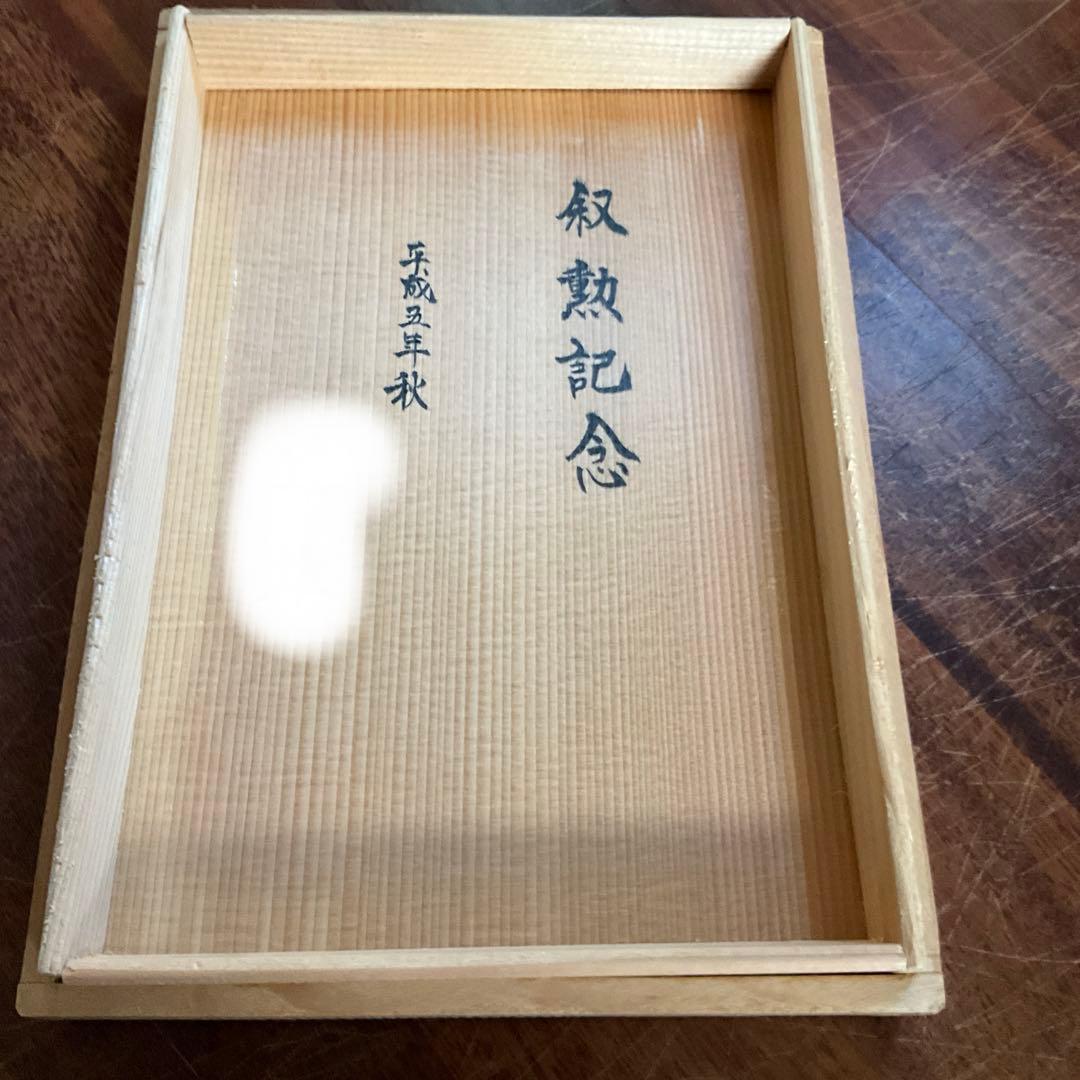 叙勲記念
平成五年秋